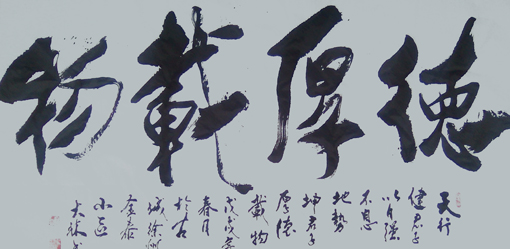 德厚載物
天行
健君子
以自強
不息
地勢
坤君子
厚德
載物
戊戌
春月
於古
城徐州
金泰
小區